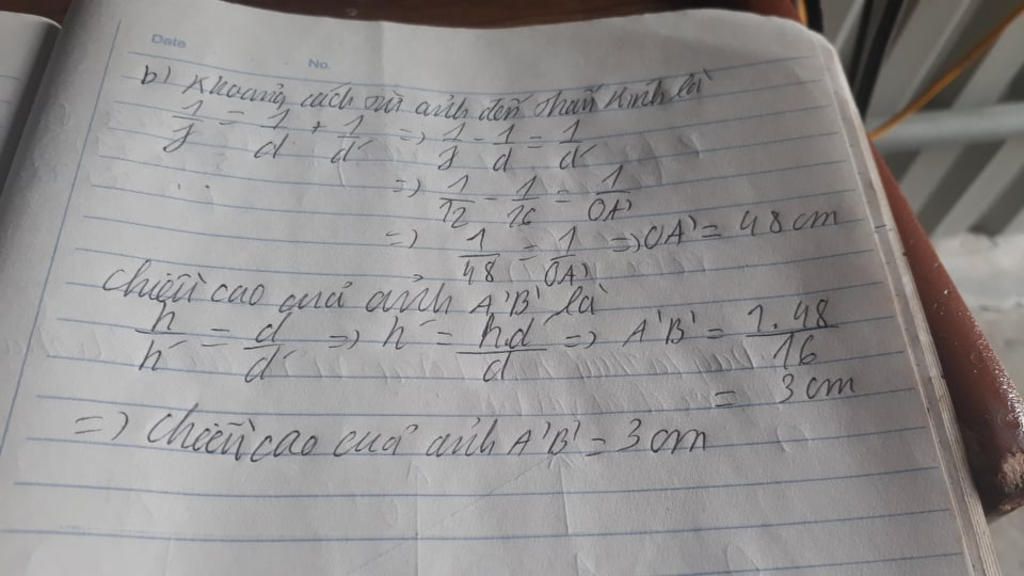 Date
No.
b) Khoảng cách từ ảnh đến thấu kính là
1/f = 1/d + 1/d' => 1/f - 1/d = 1/d'
=> 1/12 - 1/16 = 1/OA'
=> 1/48 = 1/OA' => OA' = 48cm
Chiều cao của ảnh A'B' là
h/h' = d/d' => h' = h.d'/d => A'B' = 1.48/16
= 3cm
=> Chiều cao của ảnh A'B' = 3cm